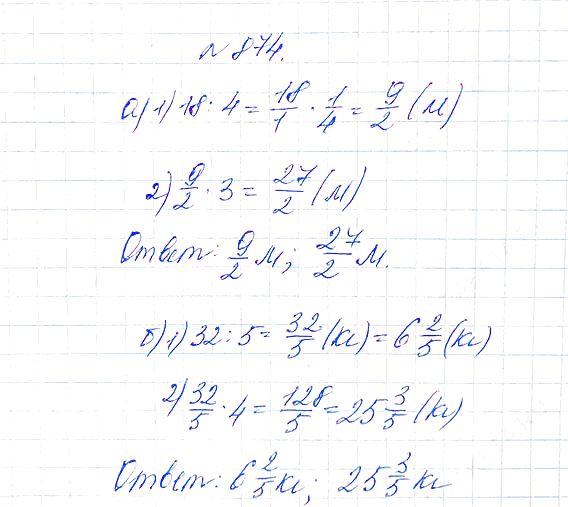 № 874.
а) 1) 18 · 4 = 18/1 · 1/4 = 9/2 (м)
2) 9/2 · 3 = 27/2 (м)
Ответ: 9/2 м; 27/2 м.
б) 1) 32 : 5 = 32/5 (кг) = 6 2/5 (кг)
2) 32/5 · 4 = 128/5 = 25 3/5 (кг)
Ответ: 6 2/5 кг; 25 3/5 кг